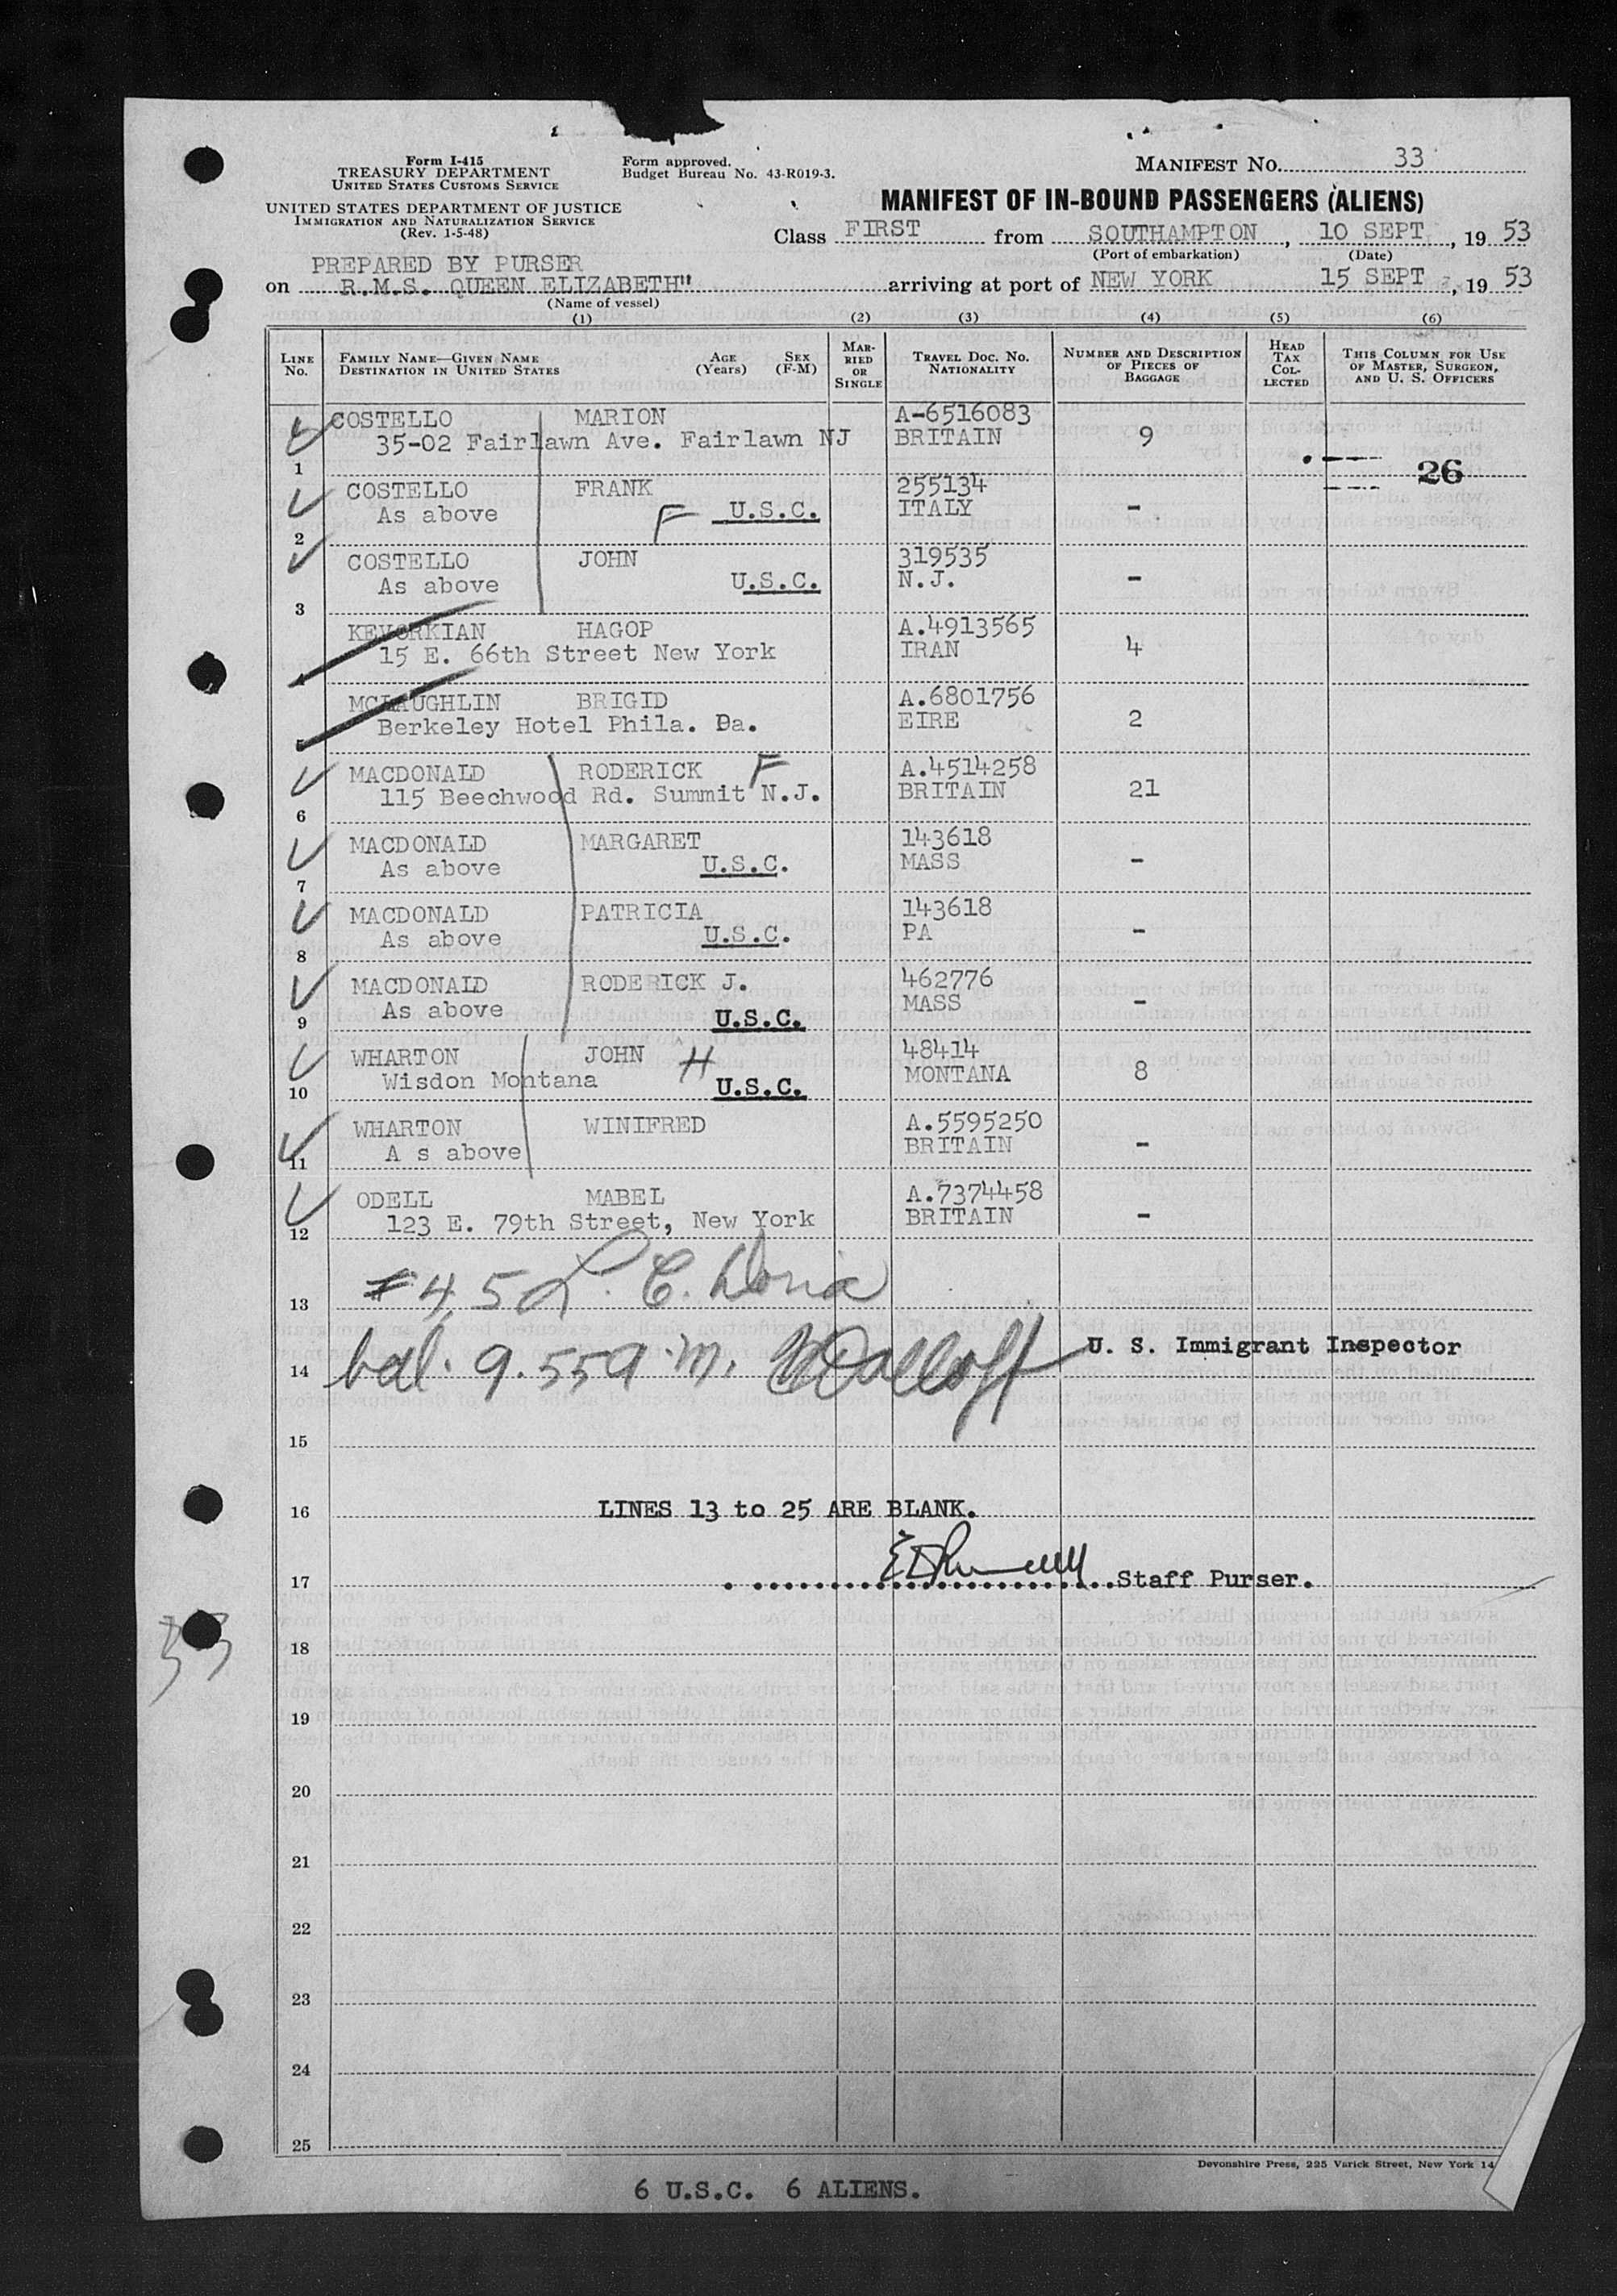 Form I-415
TREASURY DEPARTMENT
UNITED STATES CUSTOMS SERVICE
UNITED STATES DEPARTMENT OF JUSTICE
IMMIGRATION AND NATURALIZATION SERVICE
(Rev. 1-5-48)
Form approved.
Budget Bureau No. 43-R019-3.
MANIFEST NO. 33
MANIFEST OF IN-BOUND PASSENGERS (ALIENS)
Class FIRST from SOUTHAMPTON, 10 SEPT, 1953
(Port of embarkation) (Date)
PREPARED BY PURSER
on R.M.S. QUEEN ELIZABETH" arriving at port of NEW YORK 15 SEPT, 1953
(Name of vessel)
(1) (2) (3) (4) (5) (6)
LINE NO. FAMILY NAME—GIVEN NAME DESTINATION IN UNITED STATES AGE (Years) SEX (F-M) MARRIED OR SINGLE TRAVEL DOC. NO. NATIONALITY NUMBER AND DESCRIPTION OF PIECES OF BAGGAGE HEAD TAX COLLECTED THIS COLUMN FOR USE OF MASTER, SURGEON, AND U. S. OFFICERS
COSTELLO MARION A-6516083
35-02 Fairlawn Ave. Fairlawn NJ BRITAIN 9
1 26
COSTELLO FRANK 255134
As above F U.S.C. ITALY -
2
COSTELLO JOHN 319535
As above U.S.C. N.J. -
3
KEVORKIAN HAGOP A.4913565
15 E. 66th Street New York IRAN 4
MCLAUGHLIN BRIGID A.6801756
Berkeley Hotel Phila. Pa. EIRE 2
MACDONALD RODERICK F A.4514258
115 Beechwood Rd. Summit N.J. BRITAIN 21
6
MACDONALD MARGARET 143618
As above U.S.C. MASS -
7
MACDONALD PATRICIA 143618
As above U.S.C. PA -
8
MACDONALD RODERICK J. 462776
As above U.S.C. MASS -
9
WHARTON JOHN H 48414
Wisdon Montana U.S.C. MONTANA 8
10
WHARTON WINIFRED A.5595250
A s above BRITAIN -
11
ODELL MABEL A.7374458
123 E. 79th Street, New York BRITAIN -
12
# 4,5 L. C. Doria
13
bal. 9.55 a.m. U. S. Immigrant Inspector
14
15
16 LINES 13 to 25 ARE BLANK.
17 Staff Purser.
33
18
19
20
21
22
23
24
25
Devonshire Press, 225 Varick Street, New York 14
6 U.S.C. 6 ALIENS.